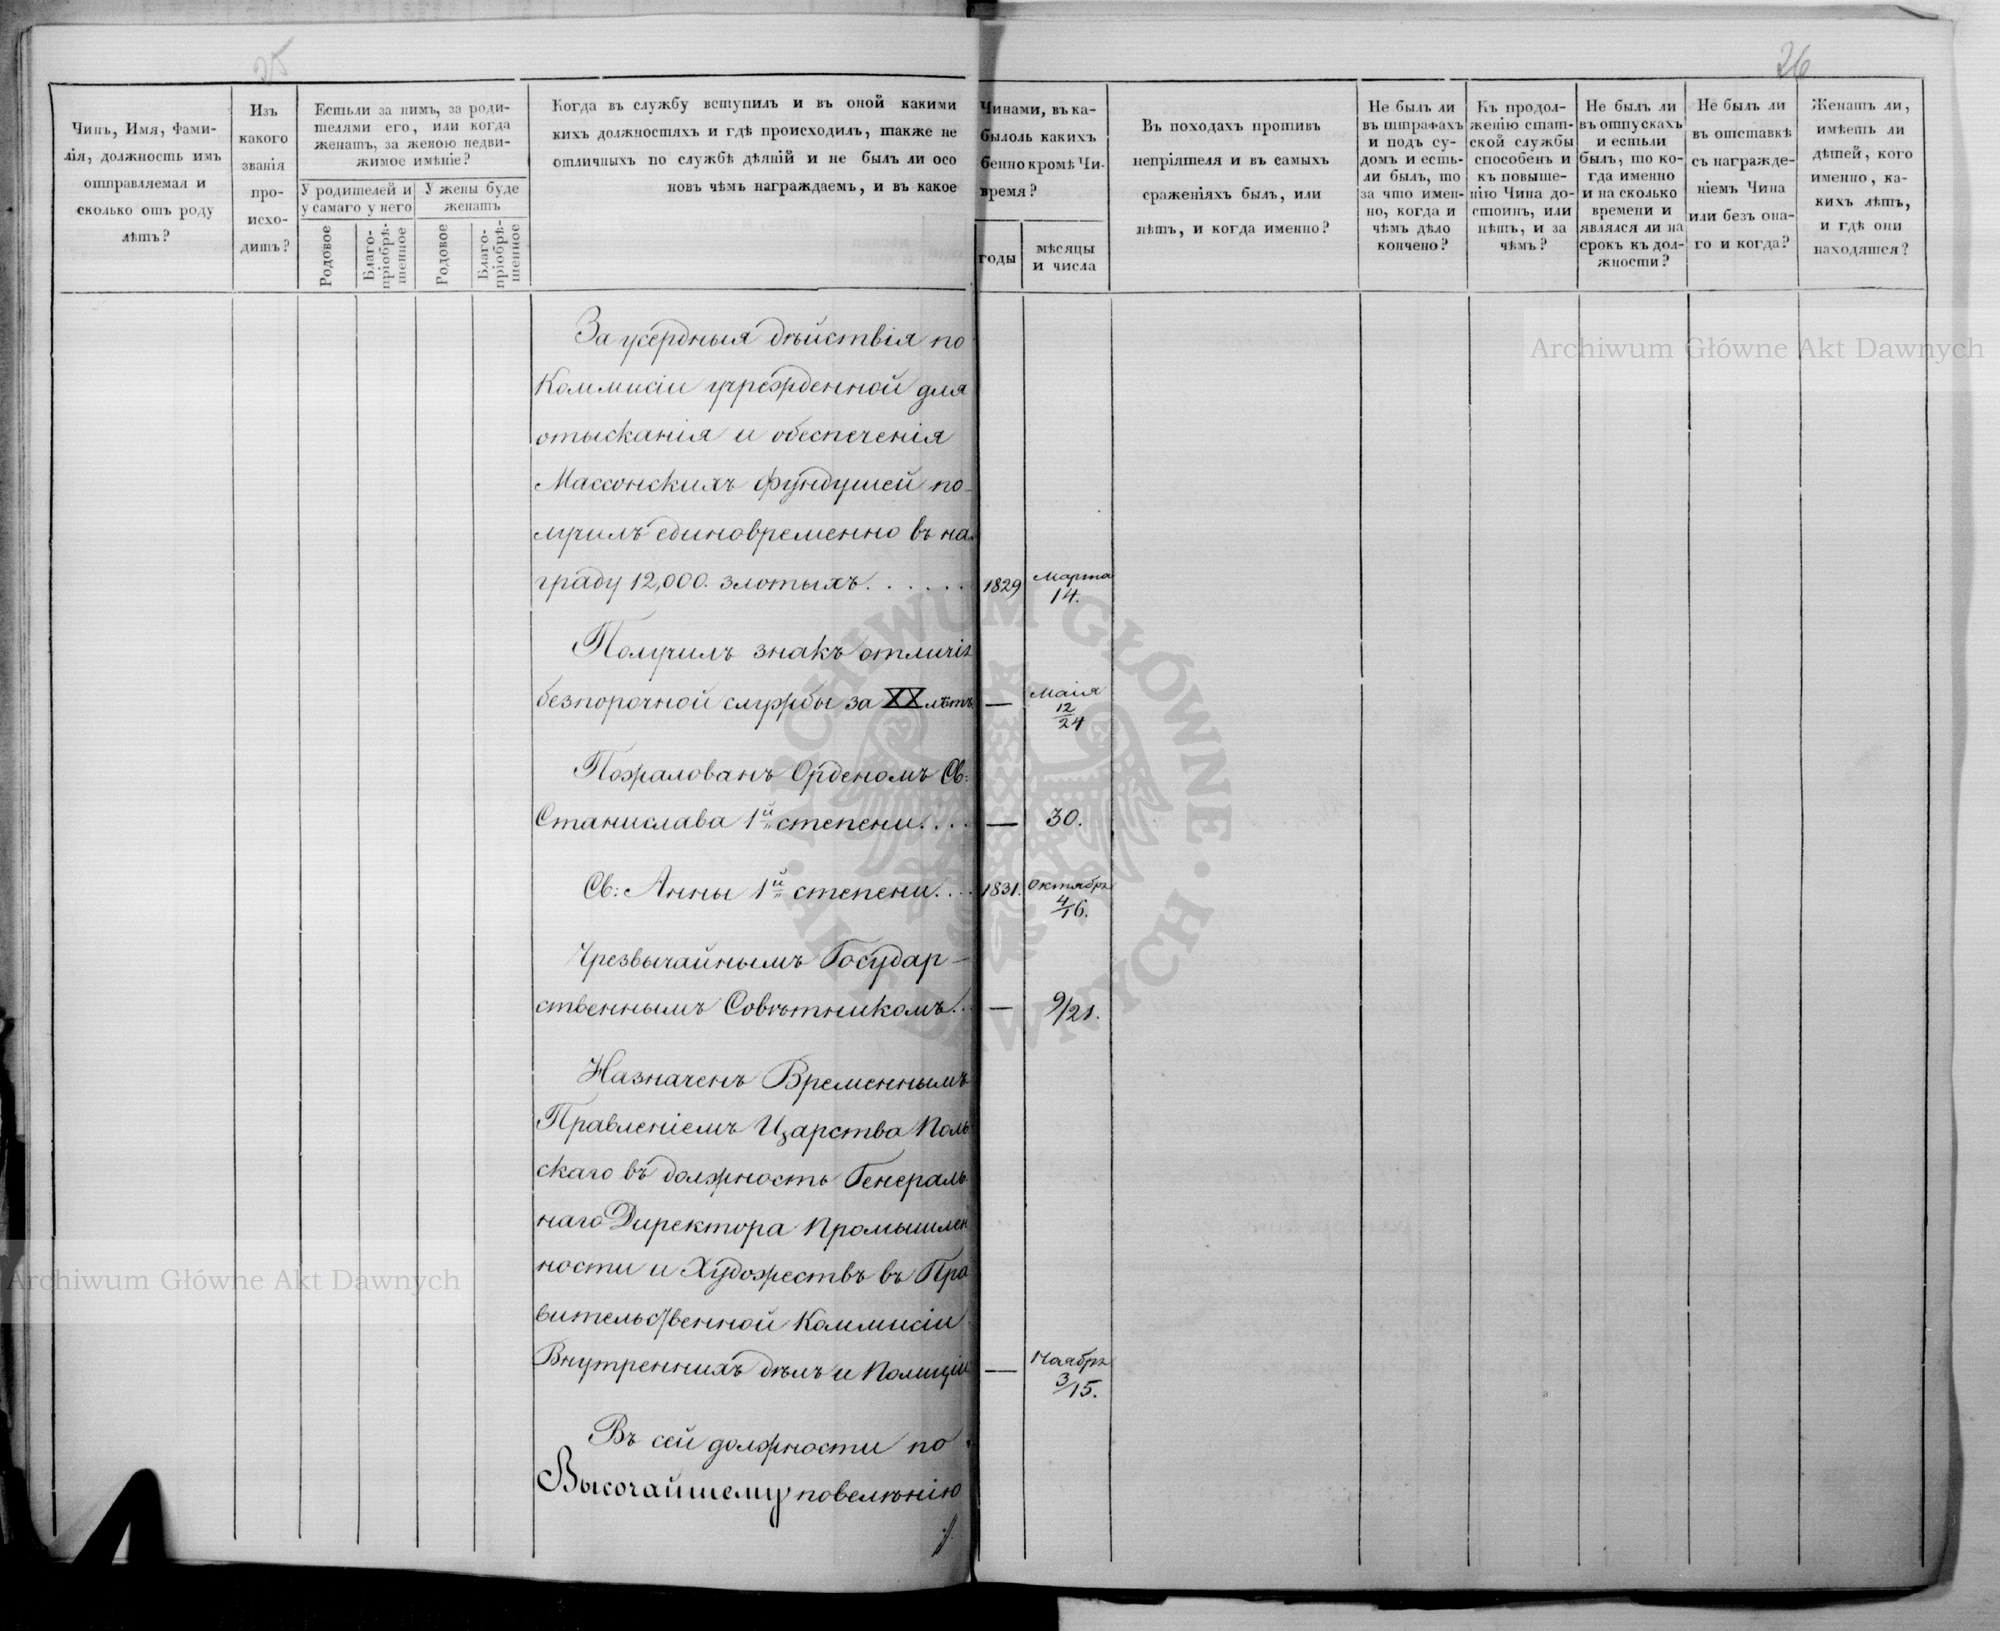 25
26
Чинъ, Имя, Фами-
лія, должность имъ
отправляемая и
сколько отъ роду
лѣтъ?
Изъ
какого
званія
про-
исхо-
дитъ?
Естьли за нимъ, за роди-
телями его, или когда
женатъ, за женою недви-
жимое имѣніе?
У родителей и
у самаго у него
У жены буде
женатъ
Родовое
Благо-
пріобрѣ-
тенное
Родовое
Благо-
пріобрѣ-
тенное
Когда въ службу вступилъ и въ оной какими
кихъ должностяхъ и гдѣ происходилъ, также не
отличныхъ по службѣ дѣяній и не былъ ли осо
новъ чѣмъ награждаемъ, и въ какое
Чинами, въ ка-
былоль какихъ
бенно кромѣ Чи-
время?
годы
мѣсяцы
и числа
Въ походахъ противъ
непріятеля и въ самыхъ
сраженіяхъ былъ, или
нѣтъ, и когда именно?
Не былъ ли
въ штрафахъ
и подъ су-
домъ и есть-
ли былъ, то
за что имен-
но, когда и
чѣмъ дѣло
кончено?
Къ продол-
женію стат-
ской службы
способенъ и
къ повыше-
нію Чина до-
стоинъ, или
нѣтъ, и за
чѣмъ?
Не былъ ли
въ отпускахъ
и естьли
былъ, то ко-
гда именно
и на сколько
времени и
являлся ли на
срокъ къ дол-
жности?
Не былъ ли
въ отставкѣ
съ награжде-
ніемъ Чина
или безъ она-
го и когда?
Женатъ ли,
имѣетъ ли
дѣтей, кого
именно, ка-
кихъ лѣтъ,
и гдѣ они
находятся?
За усердныя дѣйствія по
Коммисіи учрежденной для
отысканія и обеспеченія
Массонскихъ фундушей по-
лучилъ единовременно въ на-
граду 12,000. злотыхъ. . . . . . 1829 Марта 14.
Получилъ знакъ отличія
безпорочной службы за XX лѣтъ — Маія 12/24
Пожалованъ Орденомъ Св:
Станислава 1й степени. . . . — 30.
Св: Анны 1й степени. . . 1831. Октября 4/16.
Чрезвычайнымъ Государ-
ственнымъ Совѣтникомъ. . — 9/21.
Назначенъ Временнымъ
Правленіемъ Царства Поль
скаго въ должность Генераль
наго Директора Промышлен
ности и Художествъ въ Пра
вительственной Коммисіи
Внутреннихъ дѣлъ и Полиціи — Ноября 3/15.
Въ сей должности по
Высочайшему повелѣнію
Archiwum Główne Akt Dawnych
Archiwum Główne Akt Dawnych
ARCHIWUM GŁÓWNE · AKT DAWNYCH ·